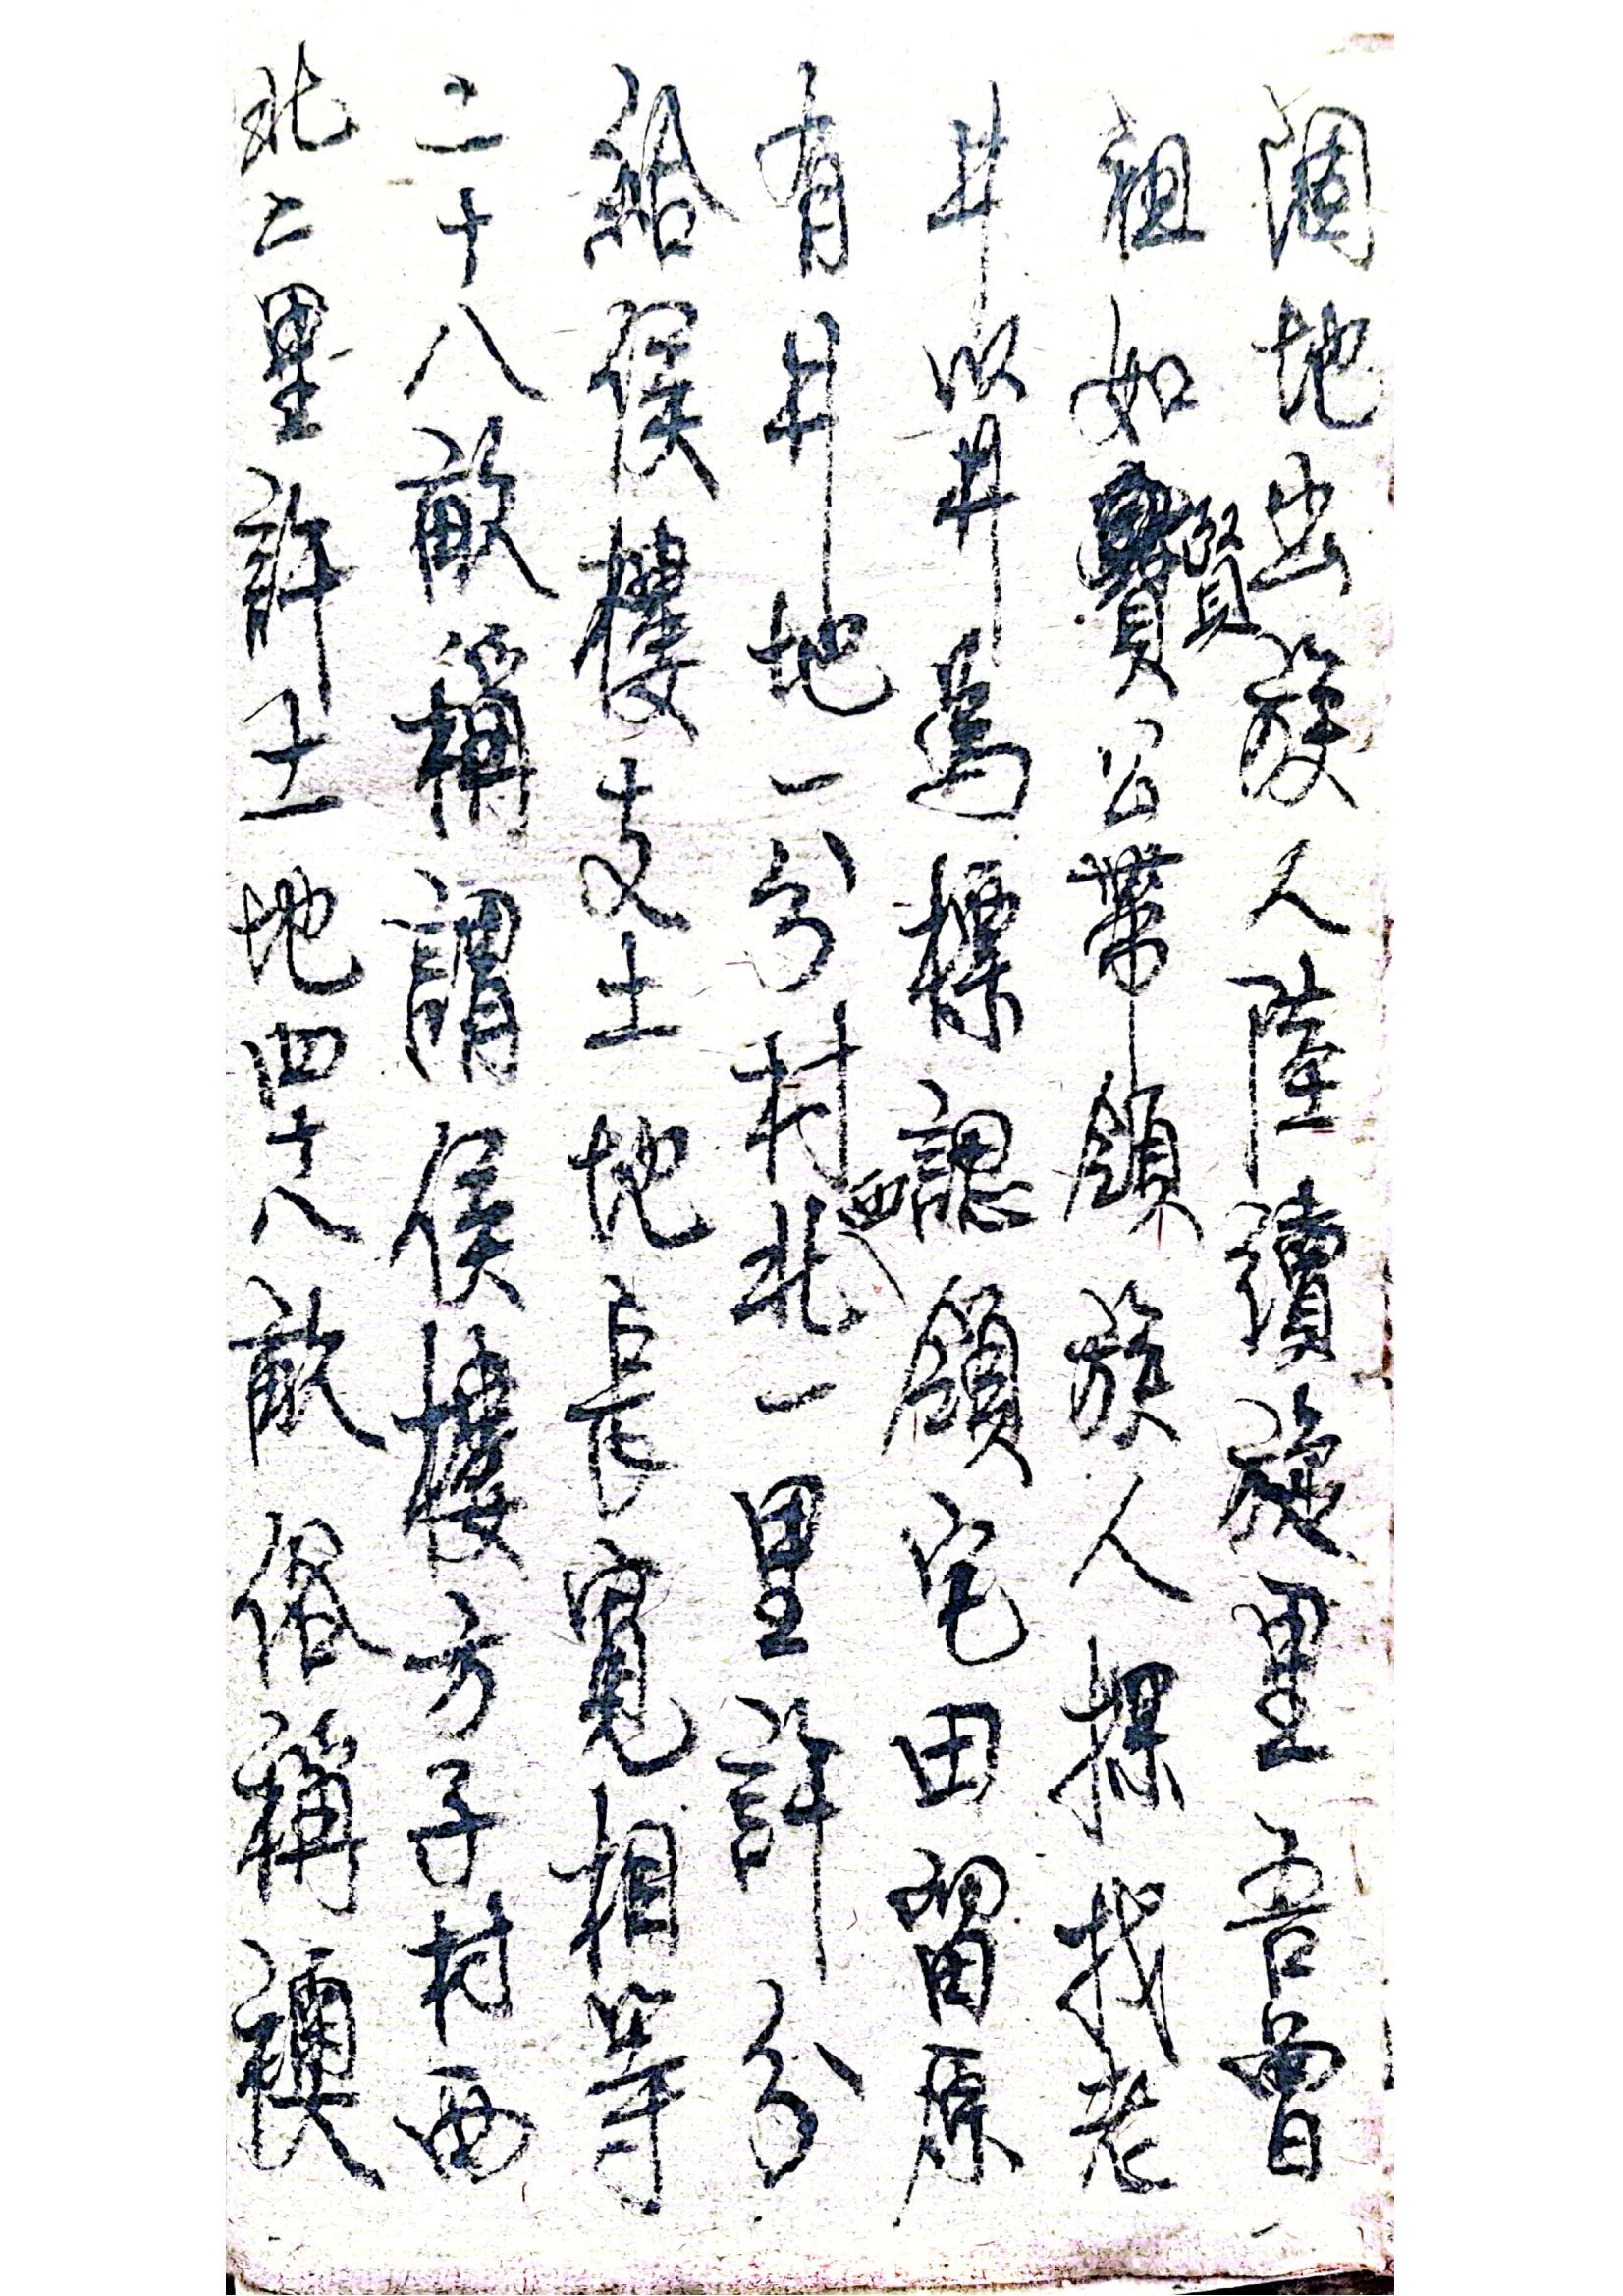 涸地出族人陸續旋里吾曾
祖如賢公帶領族人探找老
井以井為標認領宅田留原
有井地一分村西北一里許分
給侯樓支土地長寬相等
二十八畝稱謂侯樓方子村西
北二里許土地四十八畝俗稱